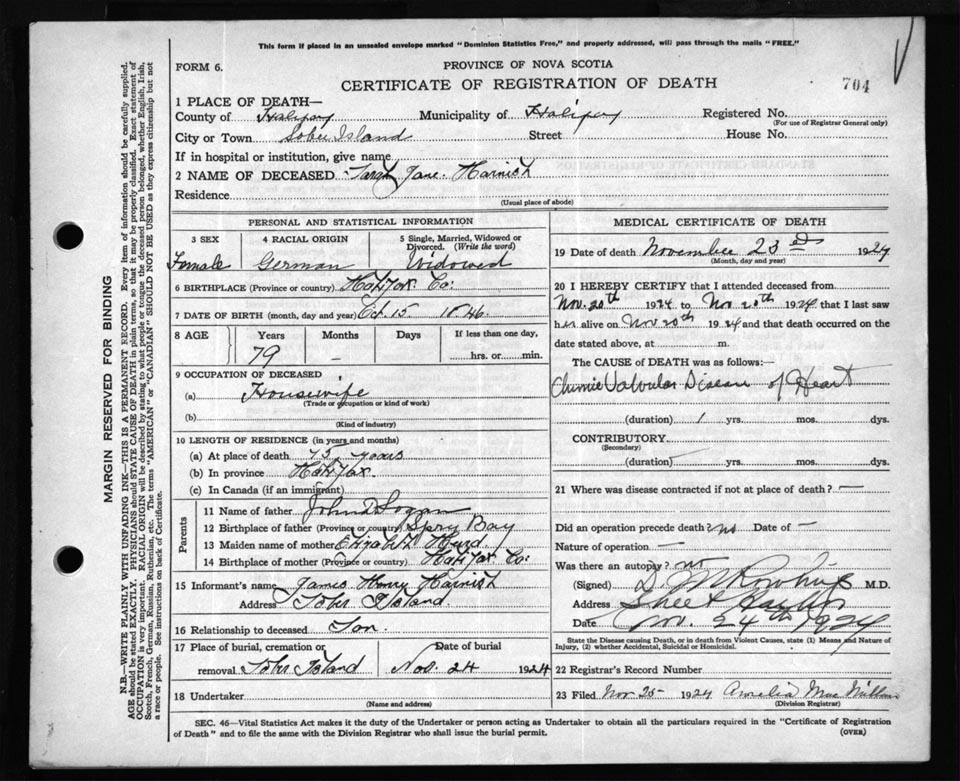 This form if placed in an unsealed envelope marked "Dominion Statistics Free," and properly addressed, will pass through the mails "FREE."
FORM 6.
PROVINCE OF NOVA SCOTIA
CERTIFICATE OF REGISTRATION OF DEATH
704
1 PLACE OF DEATH—
County of Halifax Municipality of Halifax Registered No.
(For use of Registrar General only)
City or Town Sober Island Street House No.
If in hospital or institution, give name
2 NAME OF DECEASED Sarah Jane Harnish
Residence
(Usual place of abode)
PERSONAL AND STATISTICAL INFORMATION
3 SEX 4 RACIAL ORIGIN 5 Single, Married, Widowed or Divorced. (Write the word)
Female German Widowed
6 BIRTHPLACE (Province or country) Halifax Co:
7 DATE OF BIRTH (month, day and year) Oct. 15. 1846.
8 AGE Years Months Days If less than one day,
79 — hrs. or min.
9 OCCUPATION OF DECEASED
(a) Housewife
(Trade or occupation or kind of work)
(b)
(Kind of industry)
10 LENGTH OF RESIDENCE (in years and months)
(a) At place of death years
(b) In province Halifax.
(c) In Canada (if an immigrant)
Parents
11 Name of father John Logan
12 Birthplace of father (Province or country) Spry Bay
13 Maiden name of mother Elizabeth
14 Birthplace of mother (Province or country) Halifax Co:
15 Informant's name James Henry Harnish
Address Sober Island.
16 Relationship to deceased Son.
17 Place of burial, cremation or Date of burial
removal Sober Island Nov. 24 1924
18 Undertaker
(Name and address)
MEDICAL CERTIFICATE OF DEATH
19 Date of death November 23rd 1924
(Month, day and year)
20 I HEREBY CERTIFY that I attended deceased from
Nov. 20th 1924 to Nov 20th 1924 that I last saw
her alive on Nov 20th 1924 and that death occurred on the
date stated above, at m.
The CAUSE of DEATH was as follows:
Chronic Valvular Disease of Heart
(duration) 1 yrs. mos. dys.
CONTRIBUTORY
(Secondary)
(duration) — yrs. mos. dys.
21 Where was disease contracted if not at place of death? —
Did an operation precede death? no Date of —
Nature of operation —
Was there an autopsy? no
(Signed) M.D.
Address Sheet Harbor
Date Nov. 24th 1924
State the Disease causing Death, or in death from Violent Causes, state (1) Means and Nature of Injury, (2) whether Accidental, Suicidal or Homicidal.
22 Registrar's Record Number
23 Filed Nov 25 1924 Amelia MacMillan
(Division Registrar)
SEC. 46—Vital Statistics Act makes it the duty of the Undertaker or person acting as Undertaker to obtain all the particulars required in the "Certificate of Registration
of Death" and to file the same with the Division Registrar who shall issue the burial permit.
(OVER)
MARGIN RESERVED FOR BINDING
N.B.—WRITE PLAINLY WITH UNFADING INK—THIS IS A PERMANENT RECORD. Every item of information should be carefully supplied.
AGE should be stated EXACTLY. PHYSICIANS should STATE CAUSE OF DEATH in plain terms, so that it may be properly classified. Exact statement of
OCCUPATION is very important. RACIAL ORIGIN will be described by stating to what people or tongue the deceased person belonged, whether English, Irish,
Scotch, French, German, Russian, Ruthenian, etc. The terms "AMERICAN" or "CANADIAN" SHOULD NOT BE USED as they express citizenship but not
a race or people. See instructions on back of Certificate.